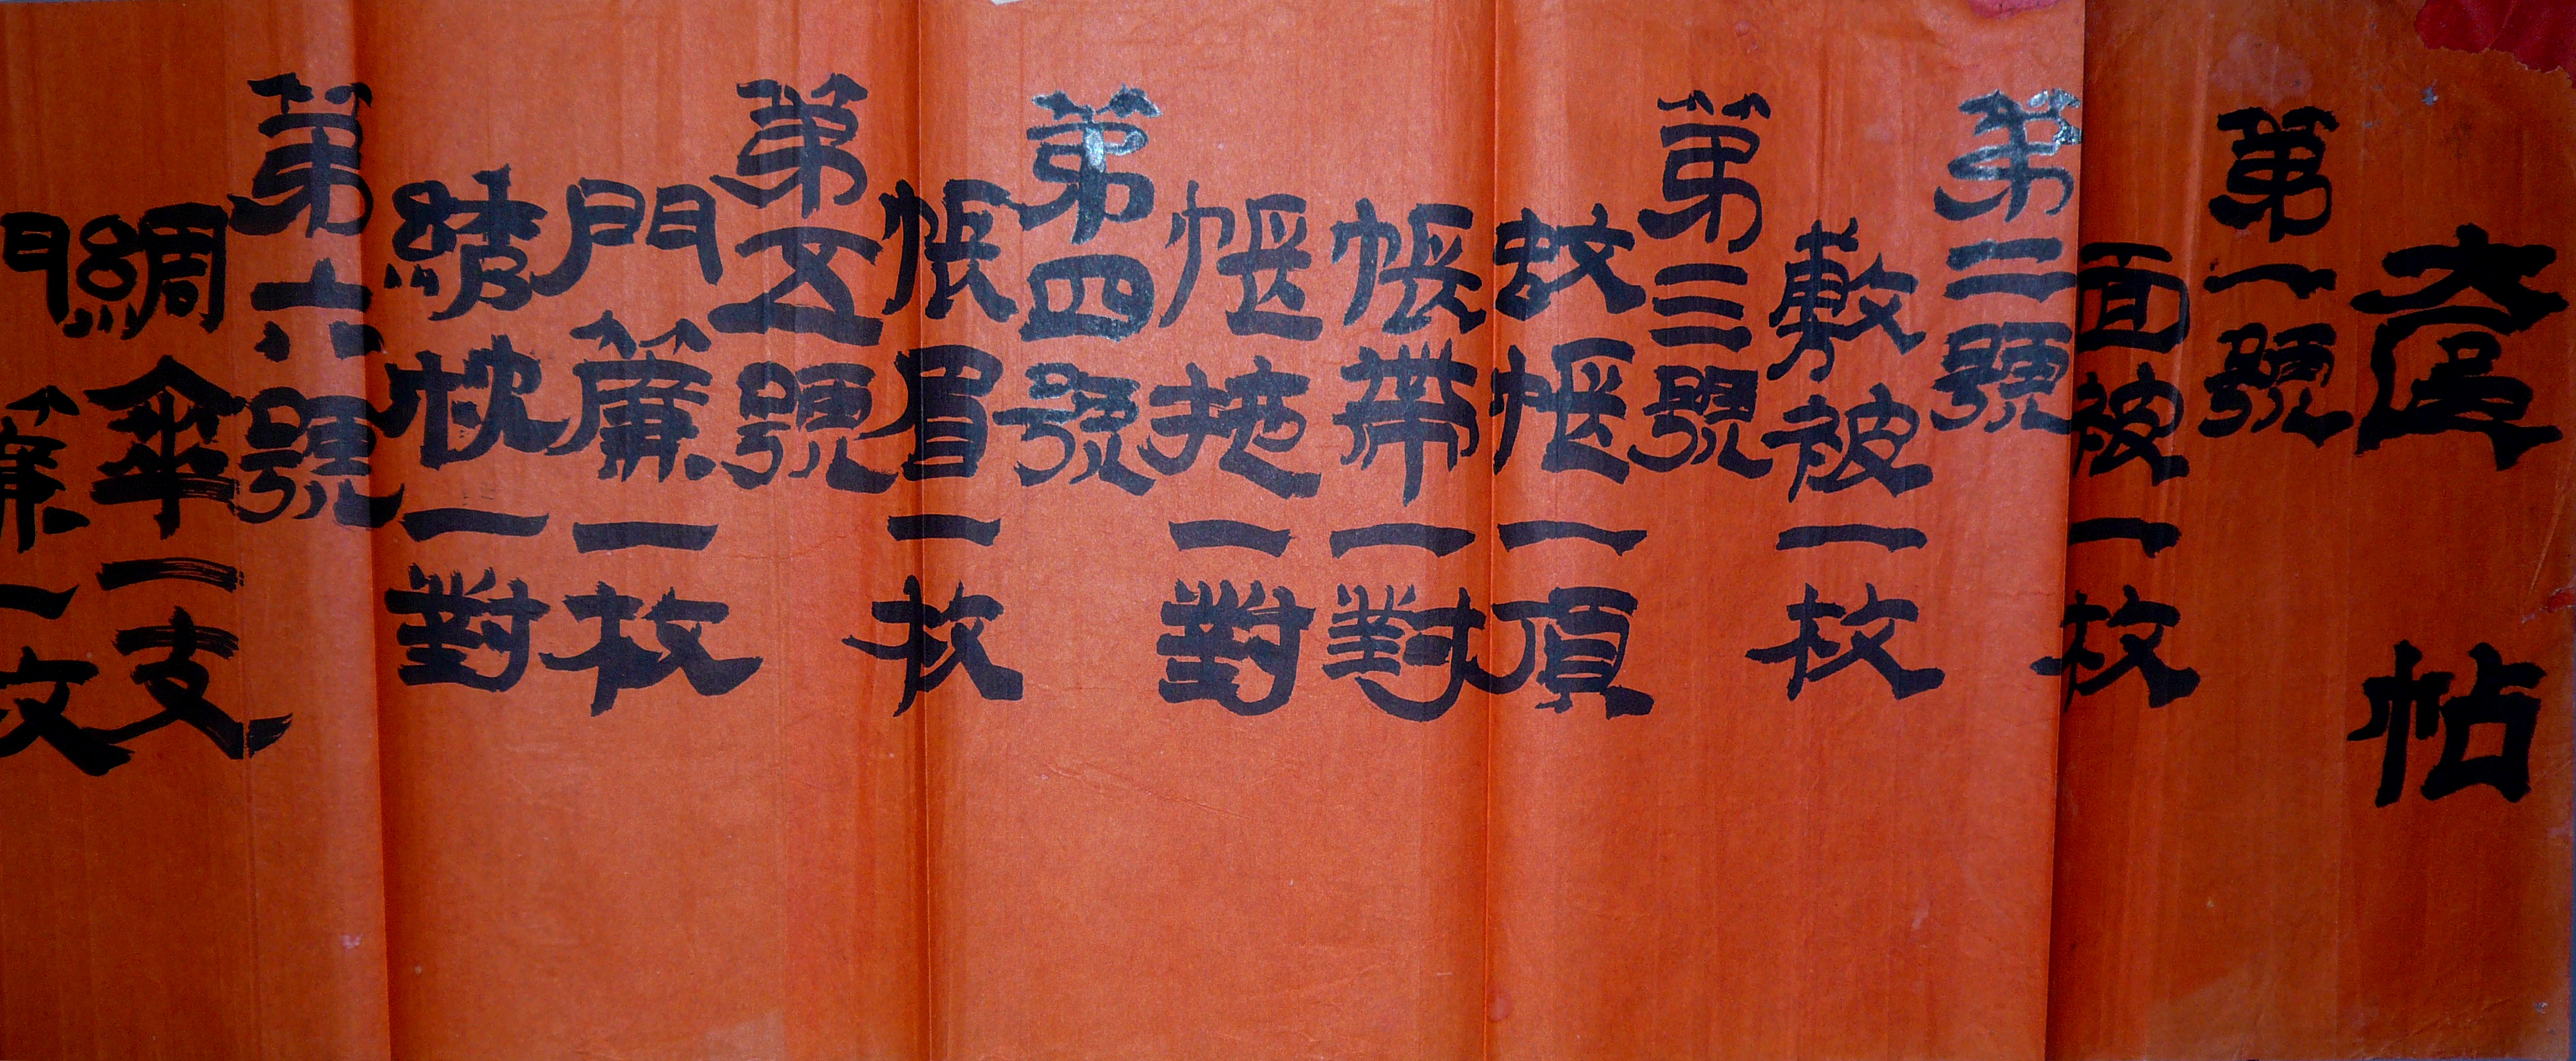 奩帖
第一號
面被一枚
第二號
敷被一枚
第三號
蚊帳一頂
帳帶一對
帳拖一對
第四號
帳眉一枚
第五號
門簾一枚
繡枕一對
第六號
綢傘一支
門簾一枚